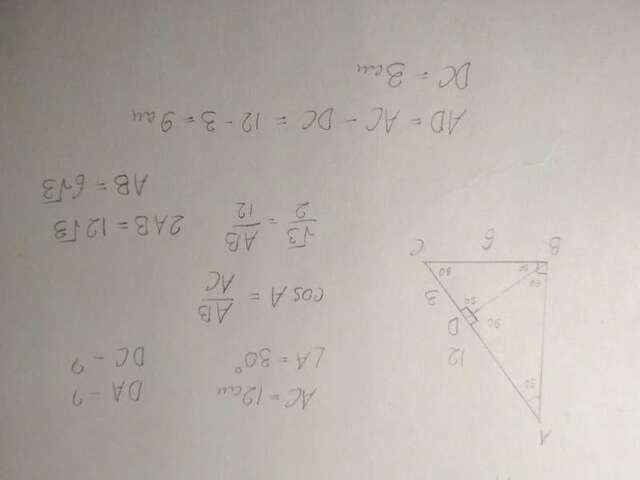 AC = 12 см
DA - ?
∠A = 30°
DC - ?
cos A = AB/AC
√3/2 = AB/12
2AB = 12√3
AB = 6√3
AD = AC - DC = 12 - 3 = 9 см
DC = 3 см
A
30
12
D
90
90
3
60
30
60
B
6
C